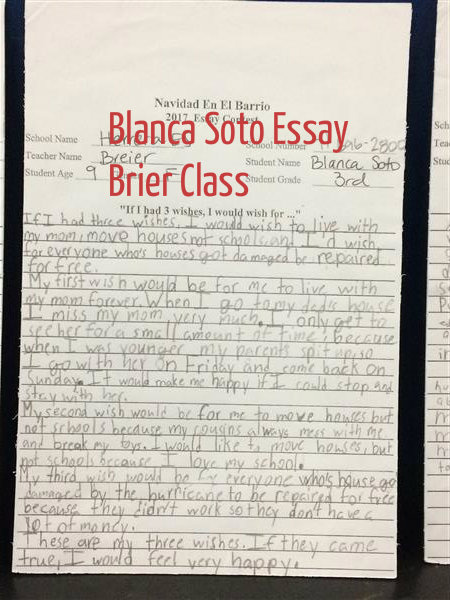 Navidad En El Barrio
2017 Essay Contest
Blanca Soto Essay
Brier Class
School Name
School Number
Teacher Name Breier Student Name Blanca Soto
Student Age 9 Student Grade 3rd
"If I had 3 wishes, I would wish for ..."
If I had three wishes, I would wish to live with
my mom, move houses not schools, and I'd wish
for everyone who's houses got damaged be repaired
for free.
My first wish would be for me to live with
my mom forever. When I go to my dad's house
I miss my mom very much. I only get to
see her for a small amount of time, because
when I was younger my parents split up, so
I go with her on Friday and come back on
Sunday. It would make me happy if I could stop and
stay with her.
My second wish would be for me to move houses but
not schools because my cousins always mess with me
and break my toys. I would like to move houses, but
not schools because I love my school.
My third wish would be for everyone who's house got
damaged by the hurricane to be repaired for free
because they didn't work so they don't have a
lot of money.
These are my three wishes. If they came
true, I would feel very happy.